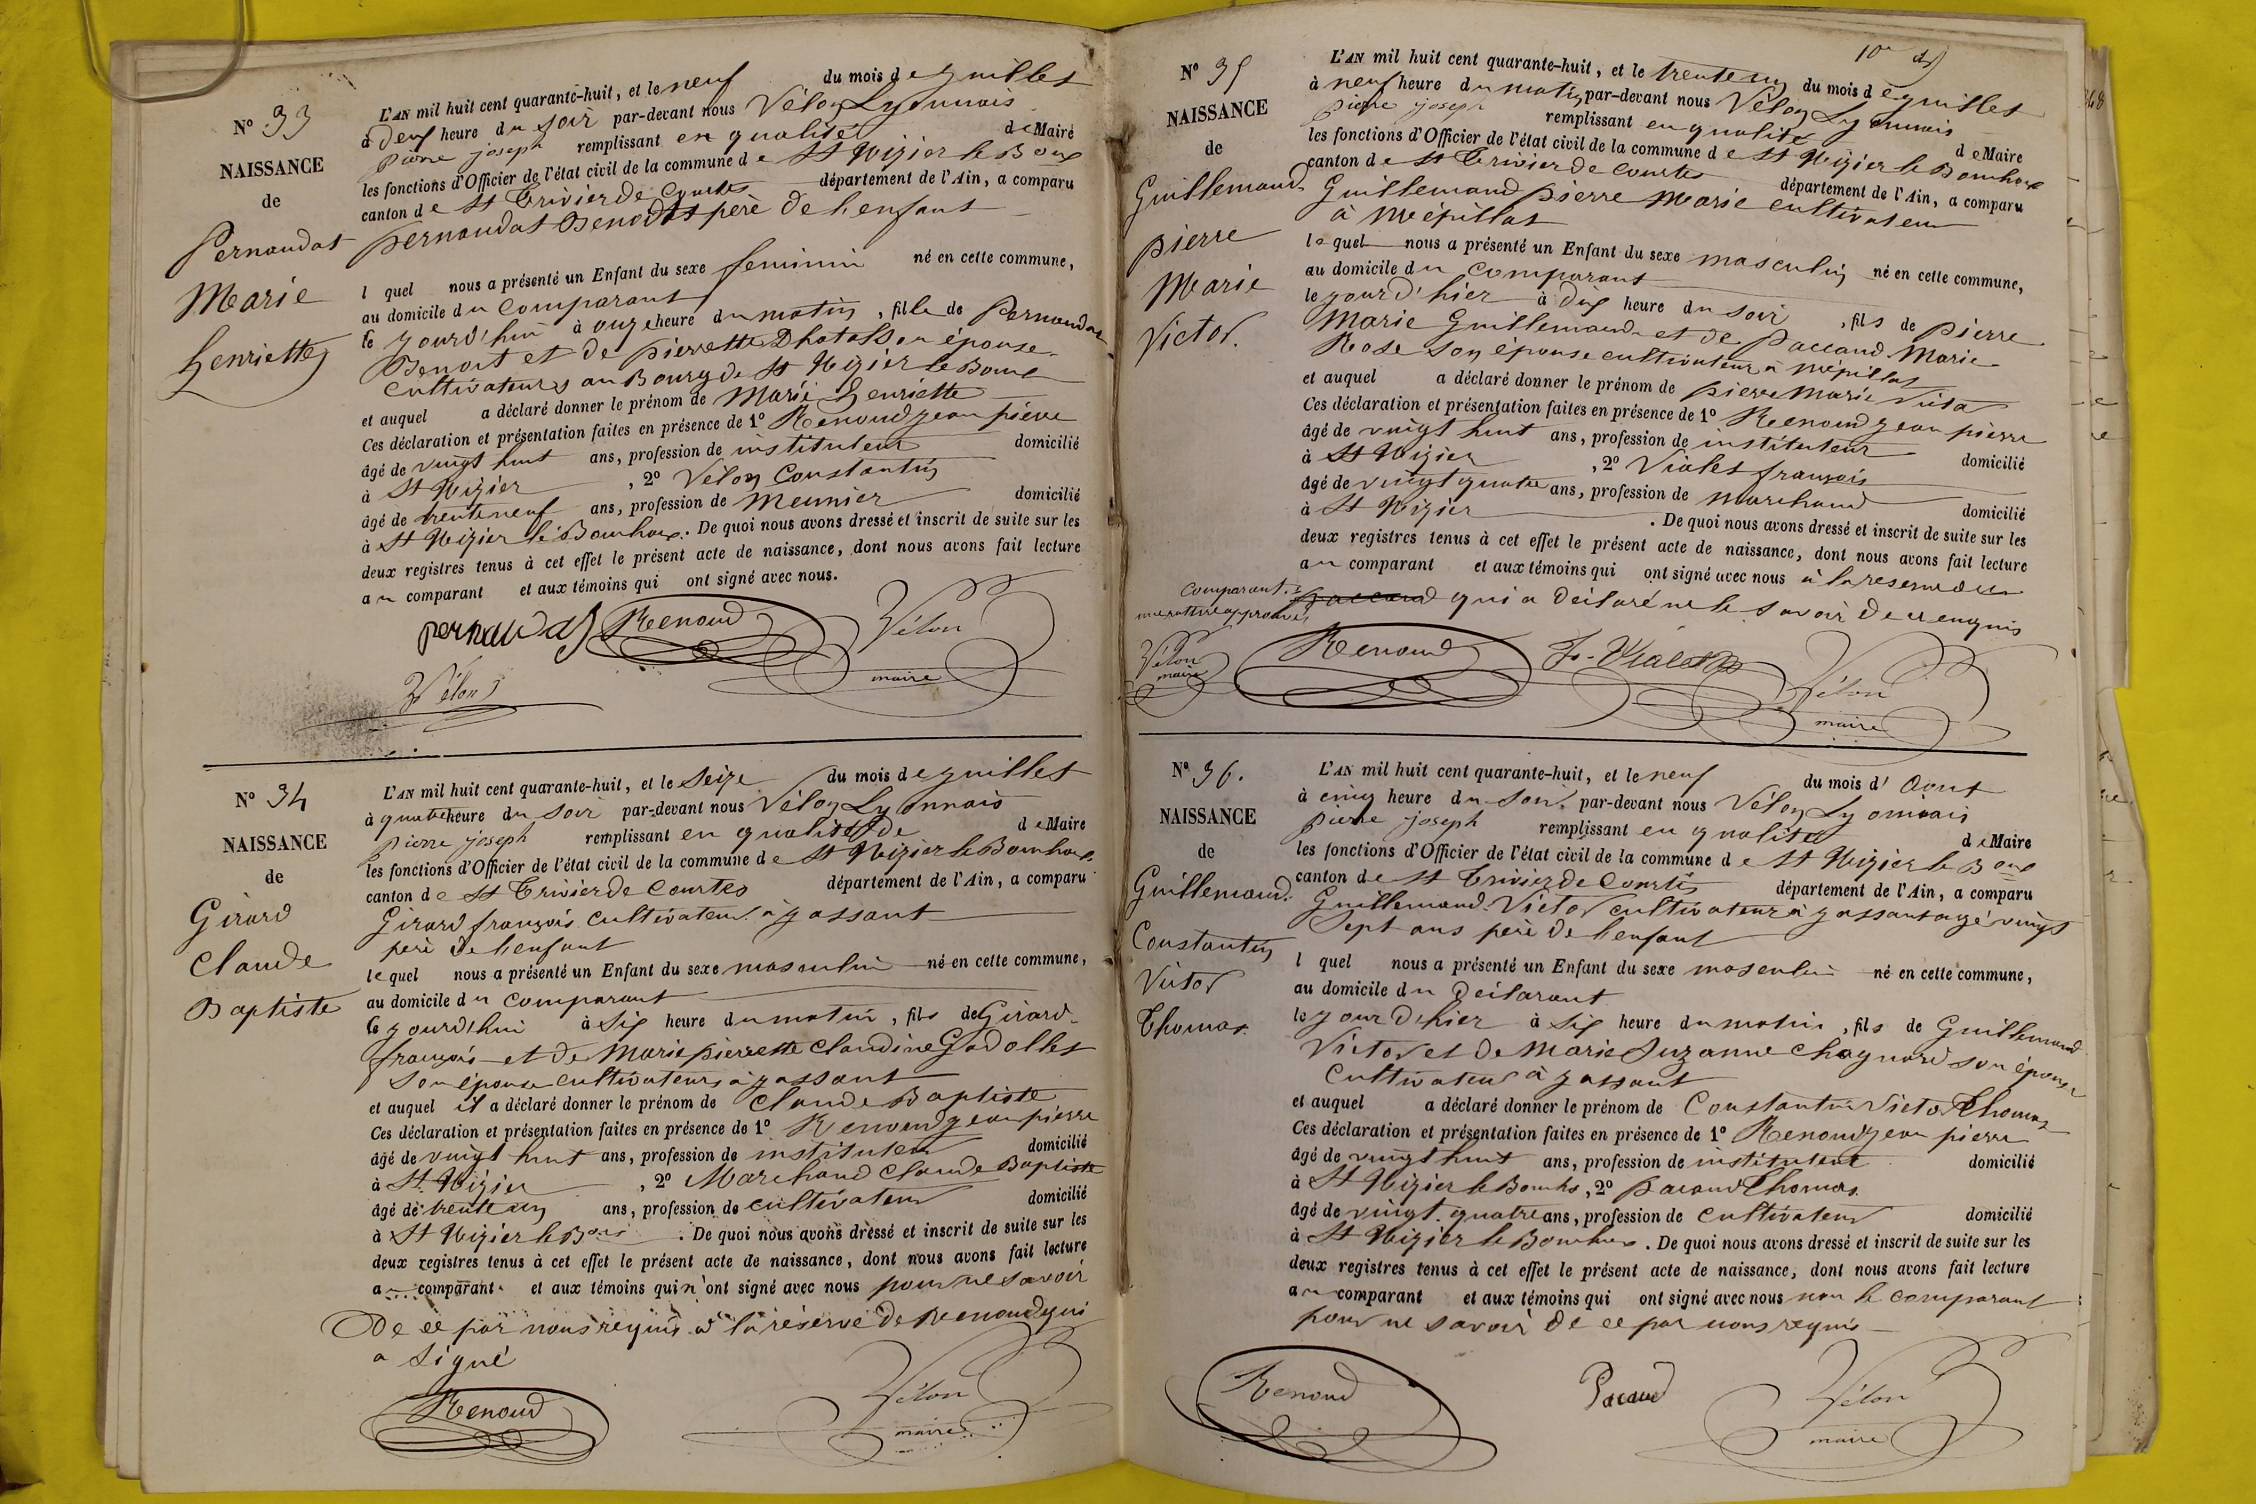 N° 33
NAISSANCE
de
Pernoudat
Marie
henriette
L'AN mil huit cent quarante-huit, et le neuf du mois de juillet
à deux heure du soir par-devant nous Vélon Lyonnais
pierre joseph remplissant en qualité de Maire
les fonctions d'Officier de l'état civil de la commune de St Nizier le Bouc
canton de St Trivier de Courtes département de l'Ain, a comparu
pernoudat Benoit père de lenfant
l quel nous a présenté un Enfant du sexe feminin né en cette commune,
au domicile du comparant
le jourd'hui à onze heure du matin, fille de Pernoudat
Benoit et de pierrette son épouse
cultivateurs au Bourg de St Nizier le Bouc
et auquel a déclaré donner le prénom de Marie henriette
Ces déclaration et présentation faites en présence de 1° Renoud jean pierre
âgé de vingt huit ans, profession de instituteur domicilié
à St Nizier, 2° Vélon Constantin
âgé de trente neuf ans, profession de Meunier domicilié
à St Nizier le Bouchoux. De quoi nous avons dressé et inscrit de suite sur les
deux registres tenus à cet effet le présent acte de naissance, dont nous avons fait lecture
au comparant et aux témoins qui ont signé avec nous.
pernaudat Renoud Vélon
maire
Vélon
N° 34
NAISSANCE
de
Girard
Claude
Baptiste
L'AN mil huit cent quarante-huit, et le seize du mois de juillet
à quatre heure du soir par-devant nous Vélon Lyonnais
pierre joseph remplissant en qualité de de Maire
les fonctions d'Officier de l'état civil de la commune de St Nizier le Bouchoux
canton de St Trivier de Courtes département de l'Ain, a comparu
Girard françois cultivateur à jassant
père de lenfant
lequel nous a présenté un Enfant du sexe masculin né en cette commune,
au domicile du comparant
le jourd'hui à six heure du matin, fils de Girard
françois et de Marie pierrette Claudine Gadollet
son épouse cultivateurs à jassant
et auquel il a déclaré donner le prénom de Claude Baptiste
Ces déclaration et présentation faites en présence de 1° Renoud jean pierre
âgé de vingt huit ans, profession de instituteur domicilié
à St Nizier, 2° Marchand Claude Baptiste
âgé de trente un ans, profession de cultivateur domicilié
à St Nizier le Boux. De quoi nous avons dressé et inscrit de suite sur les
deux registres tenus à cet effet le présent acte de naissance, dont nous avons fait lecture
au comparant et aux témoins qui n'ont signé avec nous pour ne savoir
De ce par nous requis à la réserve de Renoud qui
a signé
Renoud Vélon
maire
N° 35
NAISSANCE
de
Guillemaud
pierre
Marie
Victor.
L'AN mil huit cent quarante-huit, et le trente un du mois de juillet
à neuf heure du matin par-devant nous Vélon Lyonnais
pierre joseph remplissant en qualité de Maire
les fonctions d'Officier de l'état civil de la commune de St Nizier le Bouchoux
canton de St Trivier de Courtes département de l'Ain, a comparu
Guillemaud pierre Marie cultivateur
à Mépillat
lequel nous a présenté un Enfant du sexe masculin né en cette commune,
au domicile du comparant
le jourd'hier à dix heure du soir, fils de pierre
Marie Guillemaud et de paccaud Marie
Rose son épouse cultivateur à Mépillat
et auquel a déclaré donner le prénom de pierre Marie Victor
Ces déclaration et présentation faites en présence de 1° Renoud jean pierre
âgé de vingt huit ans, profession de instituteur domicilié
à St Nizier, 2° Violet françois
âgé de vingt quatre ans, profession de marchand domicilié
à St Nizier. De quoi nous avons dressé et inscrit de suite sur les
deux registres tenus à cet effet le présent acte de naissance, dont nous avons fait lecture
au comparant et aux témoins qui ont signé avec nous à la reserve du
comparant qui a déclaré ne le savoir De ce enquis
Vélon
maire
Renoud f. Vialet Vélon
maire
N° 36.
NAISSANCE
de
Guillemaud
Constantin
Victor
Thomas
L'AN mil huit cent quarante-huit, et le neuf du mois d'Aout
à cinq heure du soir par-devant nous Vélon Lyonnais
pierre joseph remplissant en qualité de Maire
les fonctions d'Officier de l'état civil de la commune de St Nizier le Boux
canton de St Trivier de Courtes département de l'Ain, a comparu
Guillemaud Victor cultivateur à jassant agé vingt
Sept ans père de lenfant
l quel nous a présenté un Enfant du sexe masculin né en cette commune,
au domicile du Déclarant
le jour D'hier à six heure du matin, fils de Guillemaud
Victor et de Marie Suzanne Chagnard son épouse
Cultivateur à jassant
et auquel a déclaré donner le prénom de Constantin Victor Thomas
Ces déclaration et présentation faites en présence de 1° Renoud jean pierre
âgé de vingt huit ans, profession de instituteur domicilié
à St Nizier le Bouchx, 2° pacaud Thomas
âgé de vingt quatre ans, profession de cultivateur domicilié
à St Nizier le Bouchoux. De quoi nous avons dressé et inscrit de suite sur les
deux registres tenus à cet effet le présent acte de naissance, dont nous avons fait lecture
au comparant et aux témoins qui ont signé avec nous non le comparant
pour ne savoir de ce par nous requis
Renoud Pacaud Vélon
maire